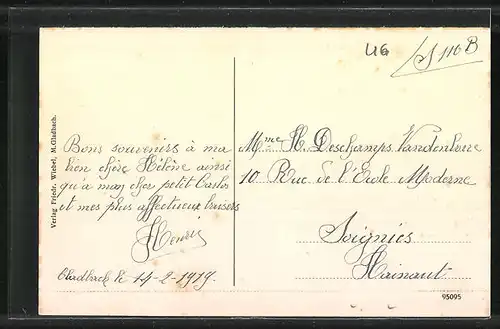 46
S 110 B
Verlag Friedr. Wiebel, M.Gladbach.
Bons souvenirs à ma
bien chère Hélène ainsi
qu'a mon cher petit Carlos
et mes plus affectueux baisers
Henri
Gladbach le 14-2-1919.
Mme H. Deschamps Vandenhove
10 Rue de l'Ecole Moderne
Soignies
Hainaut
95095